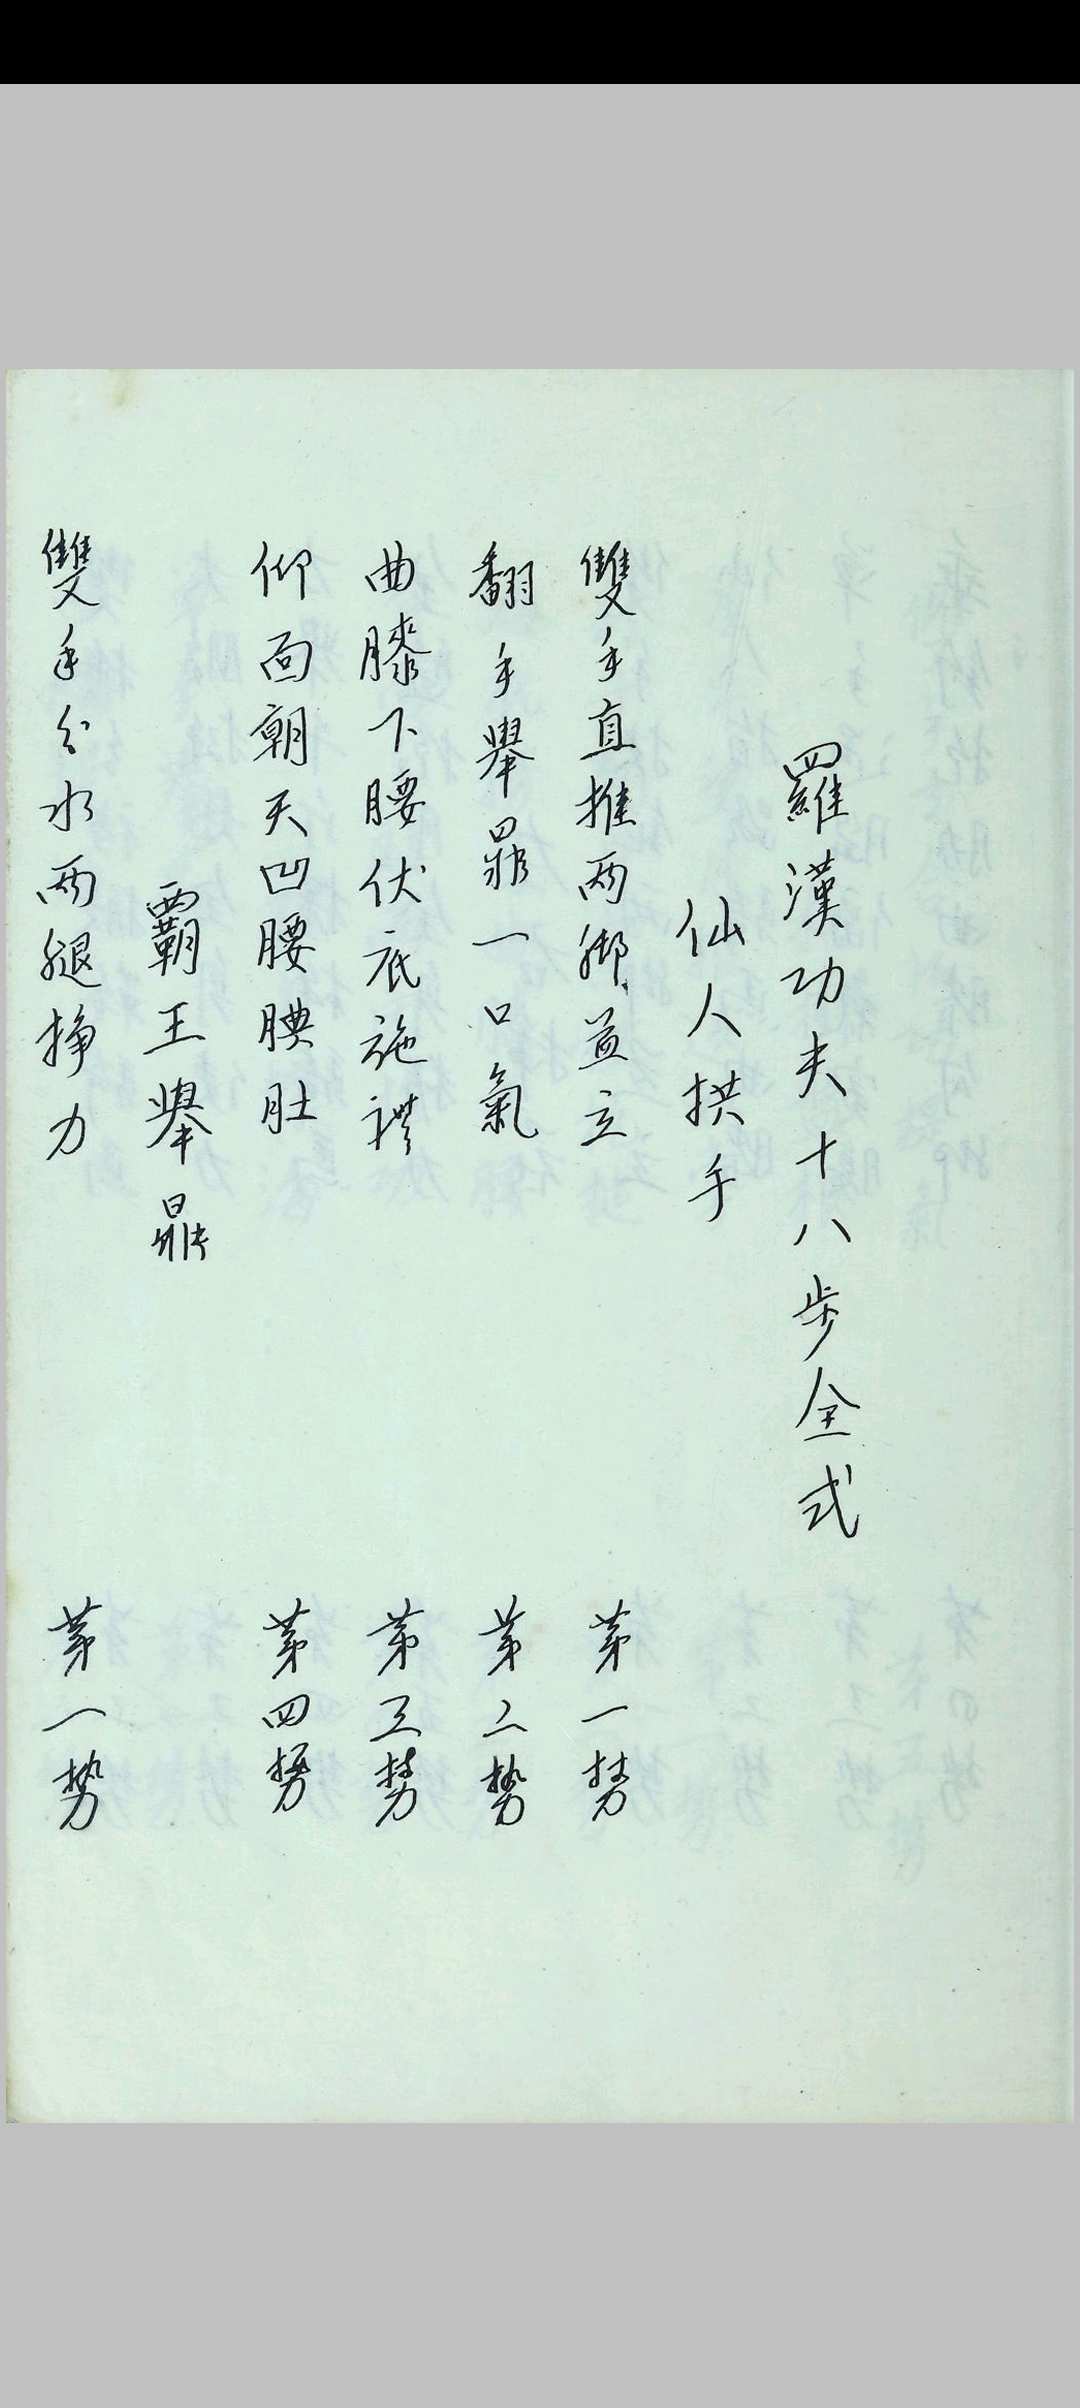 羅漢功夫十八步全式
仙人拱手
雙手直推兩腳並立 第一势
翻手舉鼎一口氣 第二势
曲膝下腰伏底施禮 第三势
仰面朝天凹腰腆肚 第四势
霸王舉鼎
雙手分水兩腿掙力 第一势